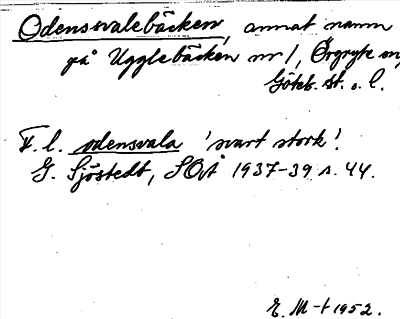 Odensvalebäcken, annat namn
på Ugglebäcken nr 1, Örgryte sn,
Göteb. st. o. l.
F. l. odensvala 'svart stork'.
G. Sjöstedt, SOÅ 1937-39 s. 44.
E. M-t 1952.